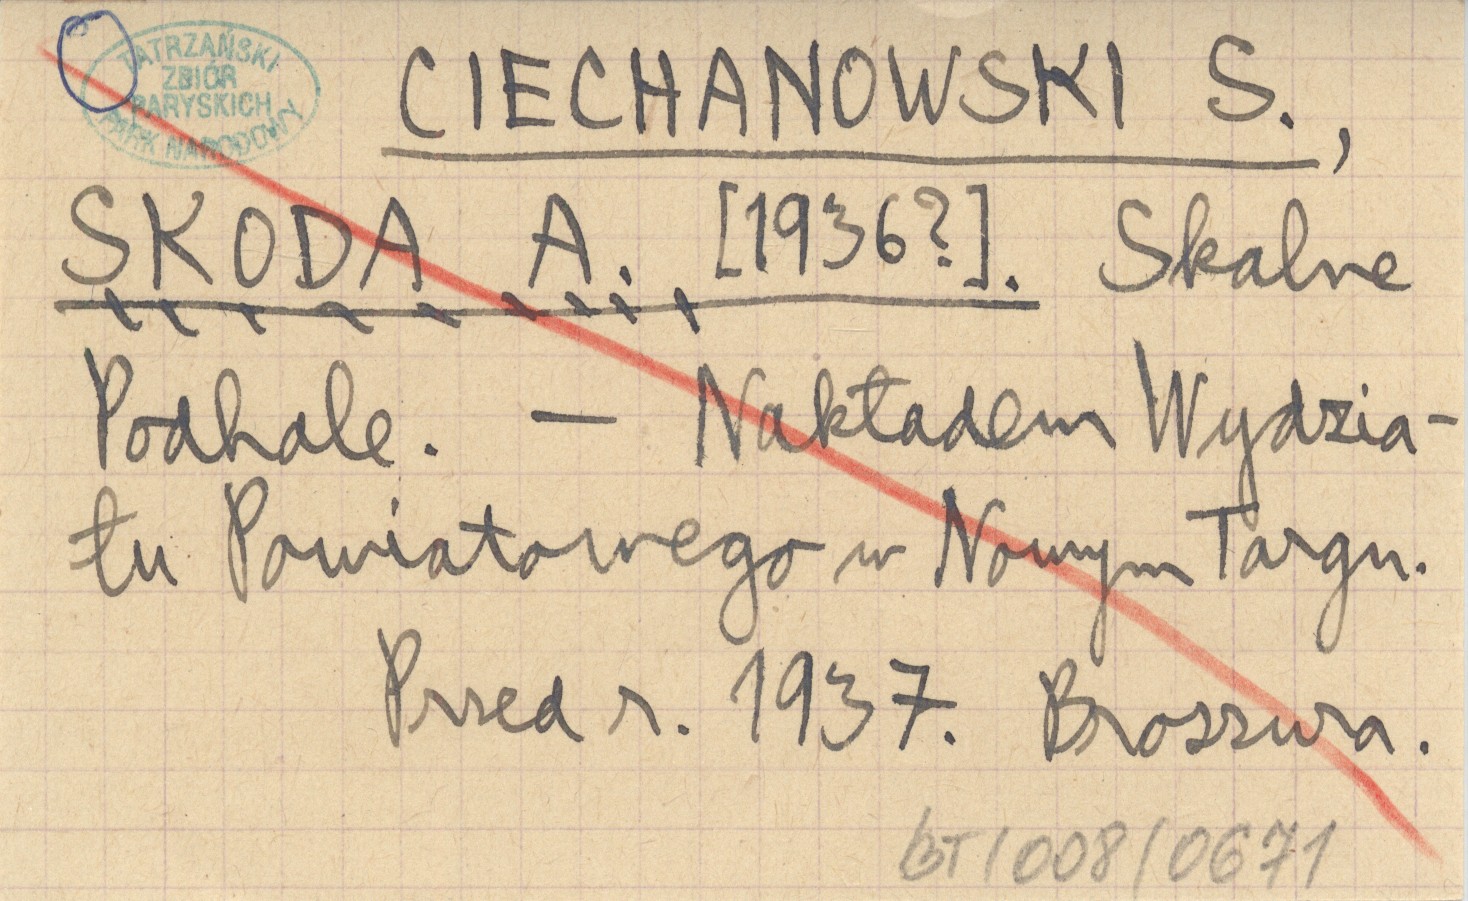 TATRZAŃSKI
ZBIÓR
PARYSKICH
PARK NARODOWY
CIECHANOWSKI S.,
SKODA A. [1936?]. Skalne
Podhale. — Nakładem Wydzia-
łu Powiatowego w Nowym Targu.
Przed r. 1937. Broszura.
BT/008/0671